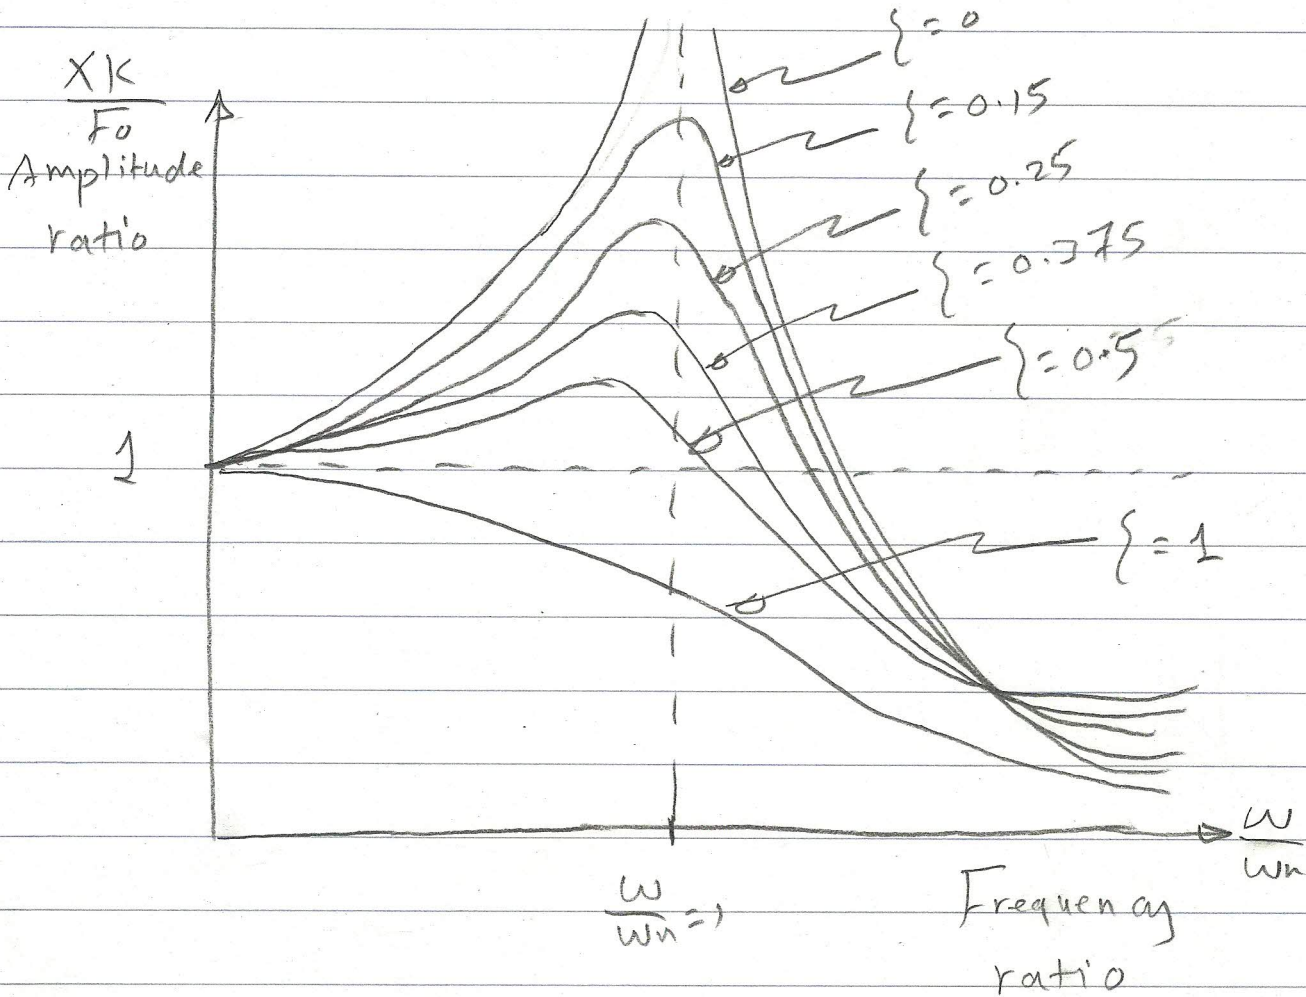 XK
Fo
Amplitude
ratio
1
ξ = 0
ξ = 0.15
ξ = 0.25
ξ = 0.375
ξ = 0.5
ξ = 1
ω
ωn
ω
ωn = 1
Frequency
ratio